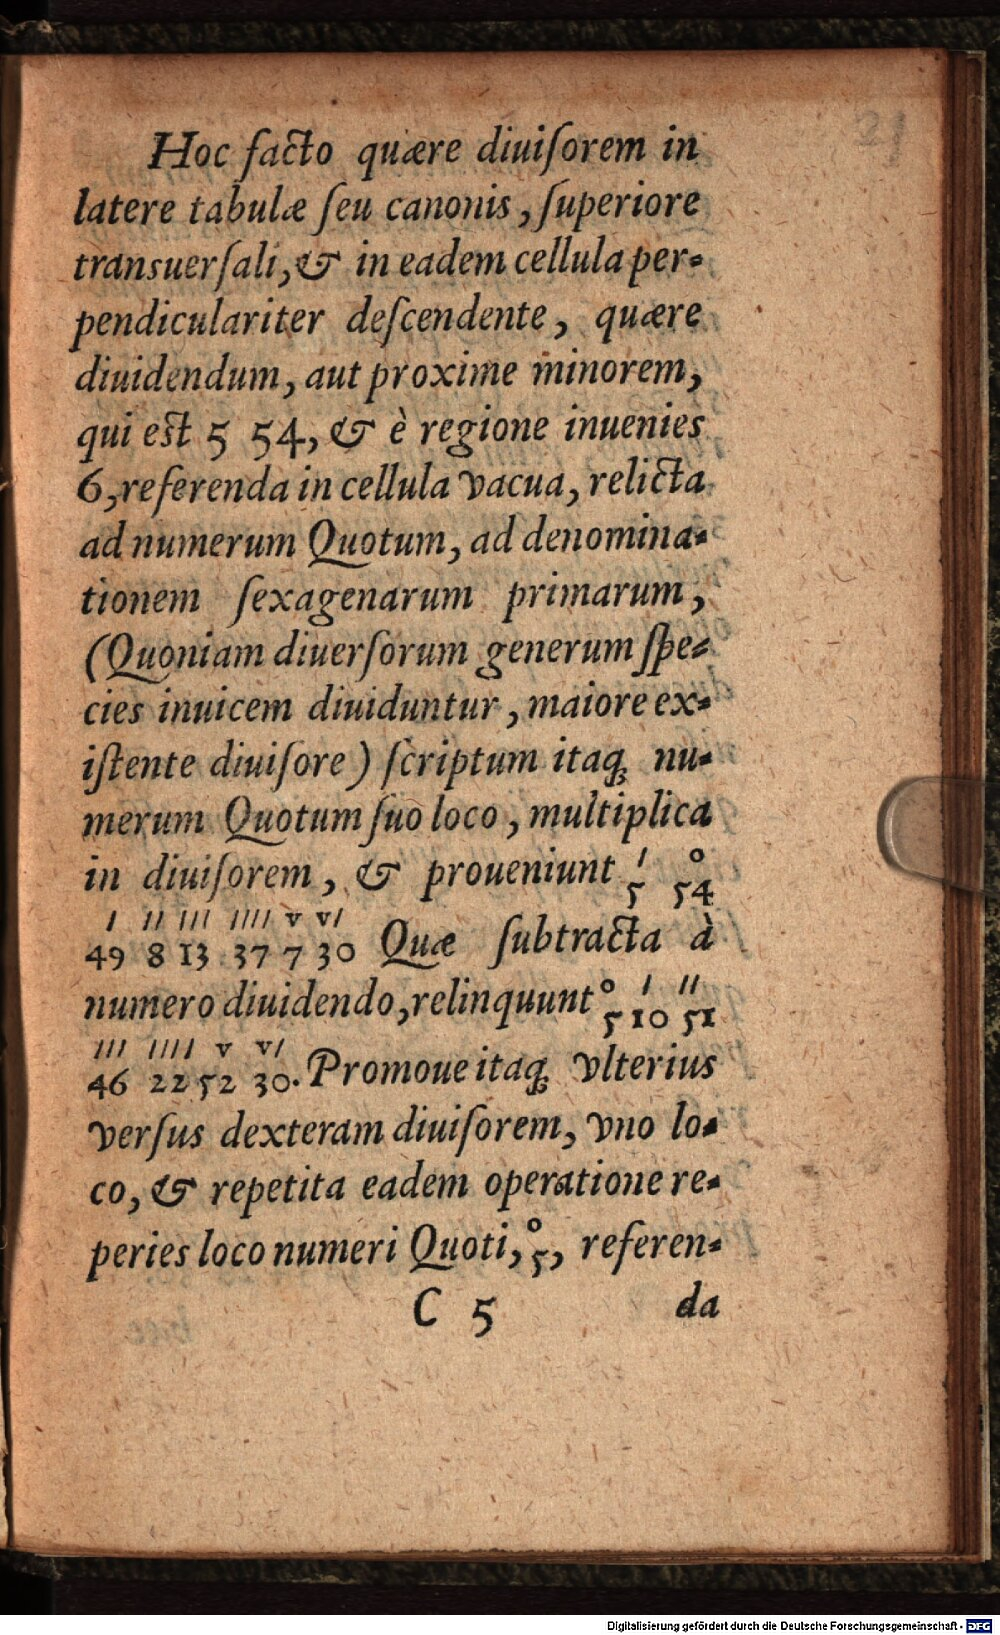 21
Hoc facto quære diuiſorem in
latere tabulæ ſeu canonis, ſuperiore
transuerſali, & in eadem cellula per-
pendiculariter deſcendente, quære
diuidendum, aut proxime minorem,
qui est 5 54, & è regione inuenies
6, referenda in cellula vacua, relicta
ad numerum Quotum, ad denomina-
tionem ſexagenarum primarum,
(Quoniam diuerſorum generum ſpe-
cies inuicem diuiduntur, maiore ex-
iſtente diuiſore) ſcriptum itaq; nu-
merum Quotum ſuo loco, multiplica
in diuiſorem, & proueniunt
I 0
5 54
I II III IIII V VI
49 8 13 37 7 30 Quæ ſubtracta à
0 I II
numero diuidendo, relinquunt 5 10 51
III IIII V VI
46 22 52 30. Promoue itaq; vlterius
verſus dexteram diuiſorem, vno lo-
co, & repetita eadem operatione re-
0
peries loco numeri Quoti, 5, referen-
C 5 da
Digitalisierung gefördert durch die Deutsche Forschungsgemeinschaft - DFG